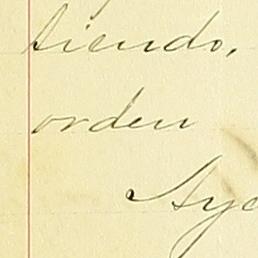 tiendo,
orden
Ay